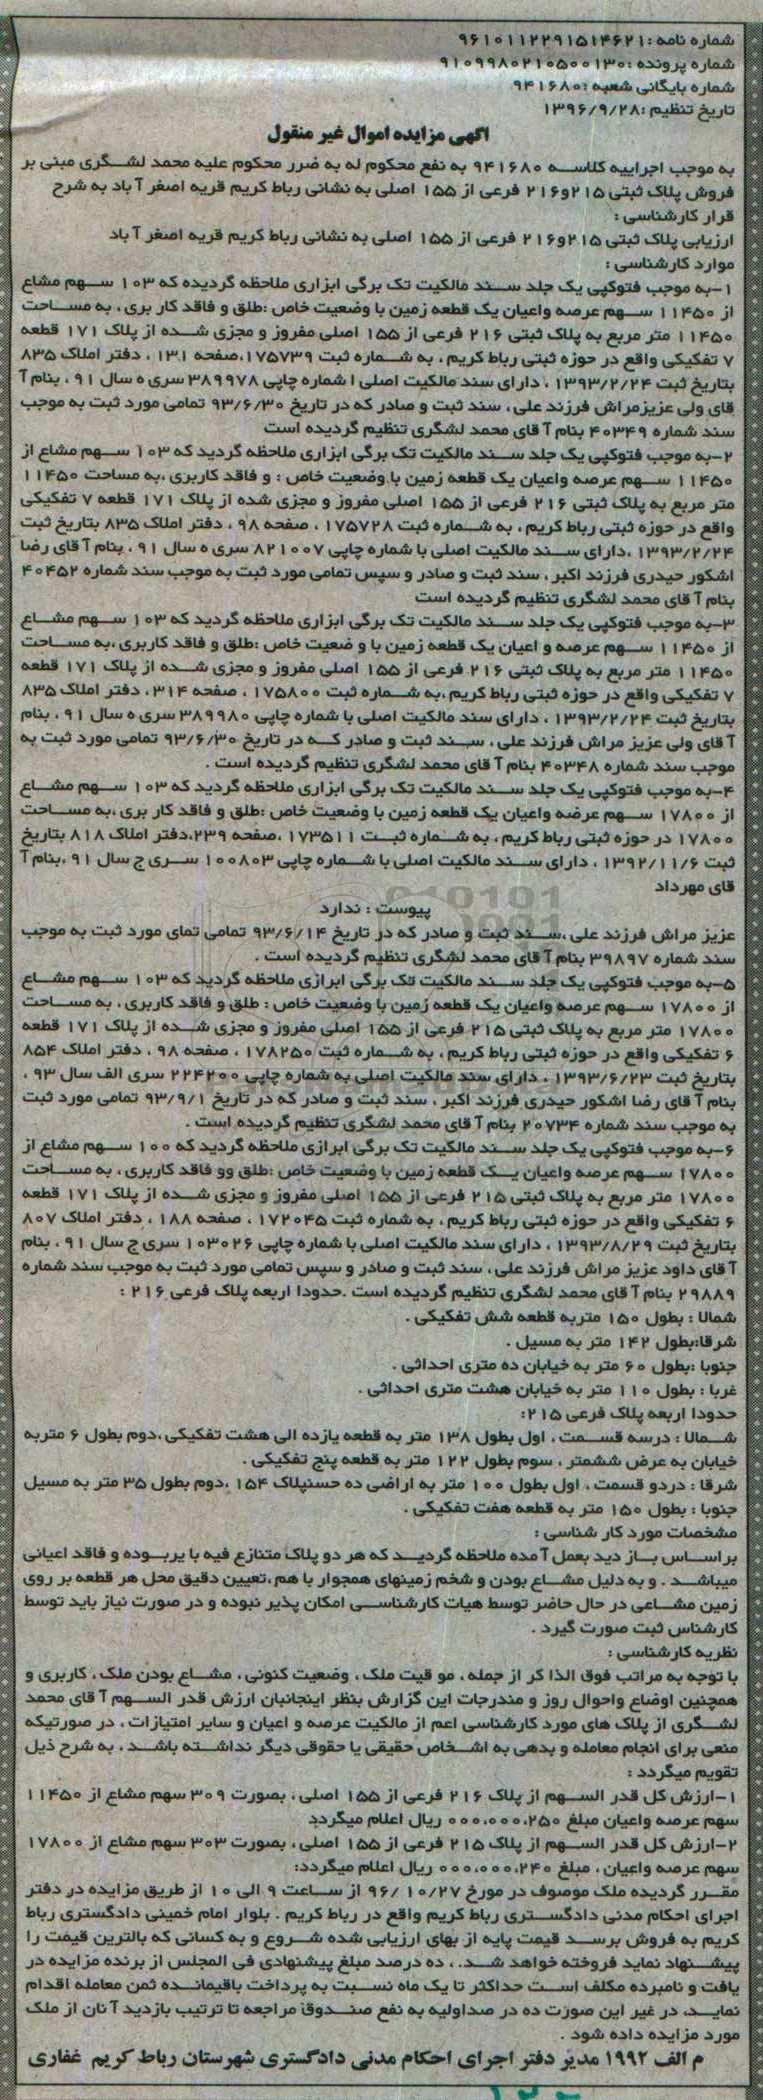 شماره نامه :۹۶۱۰۱۱۲۲۹۱۵۱۴۶۲۱
شماره پرونده :۹۱۰۹۹۸۰۲۱۰۵۰۰۱۳۰
شماره بایگانی شعبه :۹۴۱۶۸۰
تاریخ تنظیم :۱۳۹۶/۹/۲۸
اگهی مزایده اموال غیر منقول
به موجب اجراییه کلاسه ۹۴۱۶۸۰ به نفع محکوم له به ضرر محکوم علیه محمد لشگری مبنی بر
فروش پلاک ثبتی ۲۱۵و۲۱۶ فرعی از ۱۵۵ اصلی به نشانی رباط کریم قریه اصغر آباد به شرح
قرار کارشناسی :
ارزیابی پلاک ثبتی ۲۱۵و۲۱۶ فرعی از ۱۵۵ اصلی به نشانی رباط کریم قریه اصغر آباد
موارد کارشناسی :
۱-به موجب فتوکپی یک جلد سند مالکیت تک برگی ابزاری ملاحظه گردیده که ۱۰۳ سهم مشاع
از ۱۱۴۵۰ سهم عرصه واعیان یک قطعه زمین با وضعیت خاص :طلق و فاقد کار بری ، به مساحت
۱۱۴۵۰ متر مربع به پلاک ثبتی ۲۱۶ فرعی از ۱۵۵ اصلی مفروز و مجزی شده از پلاک ۱۷۱ قطعه
۷ تفکیکی واقع در حوزه ثبتی رباط کریم ، به شماره ثبت ۱۷۵۷۳۹،صفحه ۱۳۱ ، دفتر املاک ۸۳۵
بتاریخ ثبت ۱۳۹۳/۲/۲۴ ، دارای سند مالکیت اصلی ا شماره چاپی ۳۸۹۹۷۸ سری ه سال ۹۱ ، بنام آ
قای ولی عزیزمراش فرزند علی ، سند ثبت و صادر که در تاریخ ۹۳/۶/۳۰ تمامی مورد ثبت به موجب
سند شماره ۴۰۳۴۹ بنام آ قای محمد لشگری تنظیم گردیده است
۲-به موجب فتوکپی یک جلد سند مالکیت تک برگی ابزاری ملاحظه گردید که ۱۰۳ سهم مشاع از
۱۱۴۵۰ سهم عرصه واعیان یک قطعه زمین با وضعیت خاص : و فاقد کاربری ،به مساحت ۱۱۴۵۰
متر مربع به پلاک ثبتی ۲۱۶ فرعی از ۱۵۵ اصلی مفروز و مجزی شده از پلاک ۱۷۱ قطعه ۷ تفکیکی
واقع در حوزه ثبتی رباط کریم ، به شماره ثبت ۱۷۵۷۲۸ ، صفحه ۹۸ ، دفتر املاک ۸۳۵ بتاریخ ثبت
۱۳۹۳/۲/۲۴ ،دارای سند مالکیت اصلی با شماره چاپی ۸۲۱۰۰۷ سری ه سال ۹۱ ، بنام آ قای رضا
اشکور حیدری فرزند اکبر ، سند ثبت و صادر و سپس تمامی مورد ثبت به موجب سند شماره ۴۰۴۵۲
بنام آ قای محمد لشگری تنظیم گردیده است
۳-به موجب فتوکپی یک جلد سند مالکیت تک برگی ابزاری ملاحظه گردید که ۱۰۳ سهم مشاع
از ۱۱۴۵۰ سهم عرصه و اعیان یک قطعه زمین با و ضعیت خاص :طلق و فاقد کاربری ،به مساحت
۱۱۴۵۰ متر مربع به پلاک ثبتی ۲۱۶ فرعی از ۱۵۵ اصلی مفروز و مجزی شده از پلاک ۱۷۱ قطعه
۷ تفکیکی واقع در حوزه ثبتی رباط کریم ،به شماره ثبت ۱۷۵۸۰۰ ، صفحه ۳۱۴ ، دفتر املاک ۸۳۵
بتاریخ ثبت ۱۳۹۳/۲/۲۴ ، دارای سند مالکیت اصلی با شماره چاپی ۳۸۹۹۸۰ سری ه سال ۹۱ ، بنام
آ قای ولی عزیز مراش فرزند علی ، سند ثبت و صادر که در تاریخ ۹۳/۶/۳۰ تمامی مورد ثبت به
موجب سند شماره ۴۰۳۴۸ بنام آ قای محمد لشگری تنظیم گردیده است .
۴-به موجب فتوکپی یک جلد سند مالکیت تک برگی ابزاری ملاحظه گردید که ۱۰۳ سهم مشاع
از ۱۷۸۰۰ سهم عرصه واعیان یک قطعه زمین با وضعیت خاص :طلق و فاقد کار بری ،به مساحت
۱۷۸۰۰ در حوزه ثبتی رباط کریم ، به شماره ثبت ۱۷۳۵۱۱ ،صفحه ۲۳۹،دفتر املاک ۸۱۸ بتاریخ
ثبت ۱۳۹۲/۱۱/۶ ، دارای سند مالکیت اصلی با شماره چاپی ۱۰۰۸۰۳ سری ج سال ۹۱ ،بنام آ
قای مهرداد
پیوست : ندارد
عزیز مراش فرزند علی ،سند ثبت و صادر که در تاریخ ۹۳/۶/۱۴ تمامی تمای مورد ثبت به موجب
سند شماره ۳۹۸۹۷ بنام آ قای محمد لشگری تنظیم گردیده است .
۵-به موجب فتوکپی یک جلد سند مالکیت تک برگی ابرازی ملاحظه گردید که ۱۰۳ سهم مشاع
از ۱۷۸۰۰ سهم عرصه واعیان یک قطعه زمین با وضعیت خاص : طلق و فاقد کاربری ، به مساحت
۱۷۸۰۰ متر مربع به پلاک ثبتی ۲۱۵ فرعی از ۱۵۵ اصلی مفروز و مجزی شده از پلاک ۱۷۱ قطعه
۶ تفکیکی واقع در حوزه ثبتی رباط کریم ، به شماره ثبت ۱۷۸۲۵۰ ، صفحه ۹۸ ، دفتر املاک ۸۵۴
بتاریخ ثبت ۱۳۹۳/۶/۲۳ ، دارای سند مالکیت اصلی به شماره چاپی ۲۲۴۲۰۰ سری الف سال ۹۳ ،
بنام آ قای رضا اشکور حیدری فرزند اکبر ، سند ثبت و صادر که در تاریخ ۹۳/۹/۱ تمامی مورد ثبت
به موجب سند شماره ۲۰۷۳۴ بنام آ قای محمد لشگری تنظیم گردیده است .
۶-به موجب فتوکپی یک جلد سند مالکیت تک برگی ابرازی ملاحظه گردید که ۱۰۰ سهم مشاع از
۱۷۸۰۰ سهم عرصه واعیان یک قطعه زمین با وضعیت خاص :طلق وو فاقد کاربری ، به مساحت
۱۷۸۰۰ متر مربع به پلاک ثبتی ۲۱۵ فرعی از ۱۵۵ اصلی مفروز و مجزی شده از پلاک ۱۷۱ قطعه
۶ تفکیکی واقع در حوزه ثبتی رباط کریم ، به شماره ثبت ۱۷۲۰۴۵ ، صفحه ۱۸۸ ، دفتر املاک ۸۰۷
بتاریخ ثبت ۱۳۹۳/۸/۲۹ ، دارای سند مالکیت اصلی با شماره چاپی ۱۰۳۰۲۶ سری ج سال ۹۱ ، بنام
آ قای داود عزیز مراش فرزند علی ، سند ثبت و صادر و سپس تمامی مورد ثبت به موجب سند شماره
۲۹۸۸۹ بنام آ قای محمد لشگری تنظیم گردیده است .حدودا اربعه پلاک فرعی ۲۱۶ :
شمالا : بطول ۱۵۰ متربه قطعه شش تفکیکی .
شرقا:بطول ۱۴۲ متر به مسیل .
جنوبا :بطول ۶۰ متر به خیابان ده متری احداثی .
غربا : بطول ۱۱۰ متر به خیابان هشت متری احداثی .
حدودا اربعه پلاک فرعی ۲۱۵:
شمالا : درسه قسمت ، اول بطول ۱۳۸ متر به قطعه یازده الی هشت تفکیکی ،دوم بطول ۶ متربه
خیابان به عرض ششمتر ، سوم بطول ۱۲۲ متر به قطعه پنج تفکیکی .
شرقا : دردو قسمت ، اول بطول ۱۰۰ متر به اراضی ده حسنپلاک ۱۵۴ ،دوم بطول ۳۵ متر به مسیل
جنوبا : بطول ۱۵۰ متر به قطعه هفت تفکیکی .
مشخصات مورد کار شناسی :
بر اساس باز دید بعمل آمده ملاحظه گردید که هر دو پلاک متنازع فیه با یربوده و فاقد اعیانی
میباشد . و به دلیل مشاع بودن و شخم زمینهای همجوار با هم ،تعیین دقیق محل هر قطعه بر روی
زمین مشاعی در حال حاضر توسط هیات کارشناسی امکان پذیر نبوده و در صورت نیاز باید توسط
کارشناس ثبت صورت گیرد .
نظریه کارشناسی :
با توجه به مراتب فوق الذا کر از جمله ، مو قیت ملک ، وضعیت کنونی ، مشاع بودن ملک ، کاربری و
همچنین اوضاع واحوال روز و مندرجات این گزارش بنظر اینجانبان ارزش قدر السهم آ قای محمد
لشگری از پلاک های مورد کارشناسی اعم از مالکیت عرصه و اعیان و سایر امتیازات ، در صورتیکه
منعی برای انجام معامله و بدهی به اشخاص حقیقی یا حقوقی دیگر نداشته باشد ، به شرح ذیل
تقویم میگردد :
۱-ارزش کل قدر السهم از پلاک ۲۱۶ فرعی از ۱۵۵ اصلی ، بصورت ۳۰۹ سهم مشاع از ۱۱۴۵۰
سهم عرصه واعیان مبلغ ۰۰۰،۰۰۰،۲۵۰ ریال اعلام میگردد
۲-ارزش کل قدر السهم از پلاک ۲۱۵ فرعی از ۱۵۵ اصلی ، بصورت ۳۰۳ سهم مشاع از ۱۷۸۰۰
سهم عرصه واعیان ، مبلغ ۰۰۰،۰۰۰،۲۴۰ ریال اعلام میگردد:
مقرر گردیده ملک موصوف در مورخ ۹۶/ ۱۰/۲۷ از ساعت ۹ الی ۱۰ از طریق مزایده در دفتر
اجرای احکام مدنی دادگستری رباط کریم واقع در رباط کریم . بلوار امام خمینی دادگستری رباط
کریم به فروش برسد قیمت پایه از بهای ارزیابی شده شروع و به کسانی که بالترین قیمت را
پیشنهاد نماید فروخته خواهد شد. ، ده درصد مبلغ پیشنهادی فی المجلس از برنده مزایده در
یافت و نامبرده مکلف است حداکثر تا یک ماه نسبت به پرداخت باقیمانده ثمن معامله اقدام
نماید، در غیر این صورت ده در صداولیه به نفع صندوق مراجعه تا ترتیب بازدید آنان از ملک
مورد مزایده داده شود .
م الف ۱۹۹۲ مدیر دفتر اجرای احکام مدنی دادگستری شهرستان رباط کریم غفاری